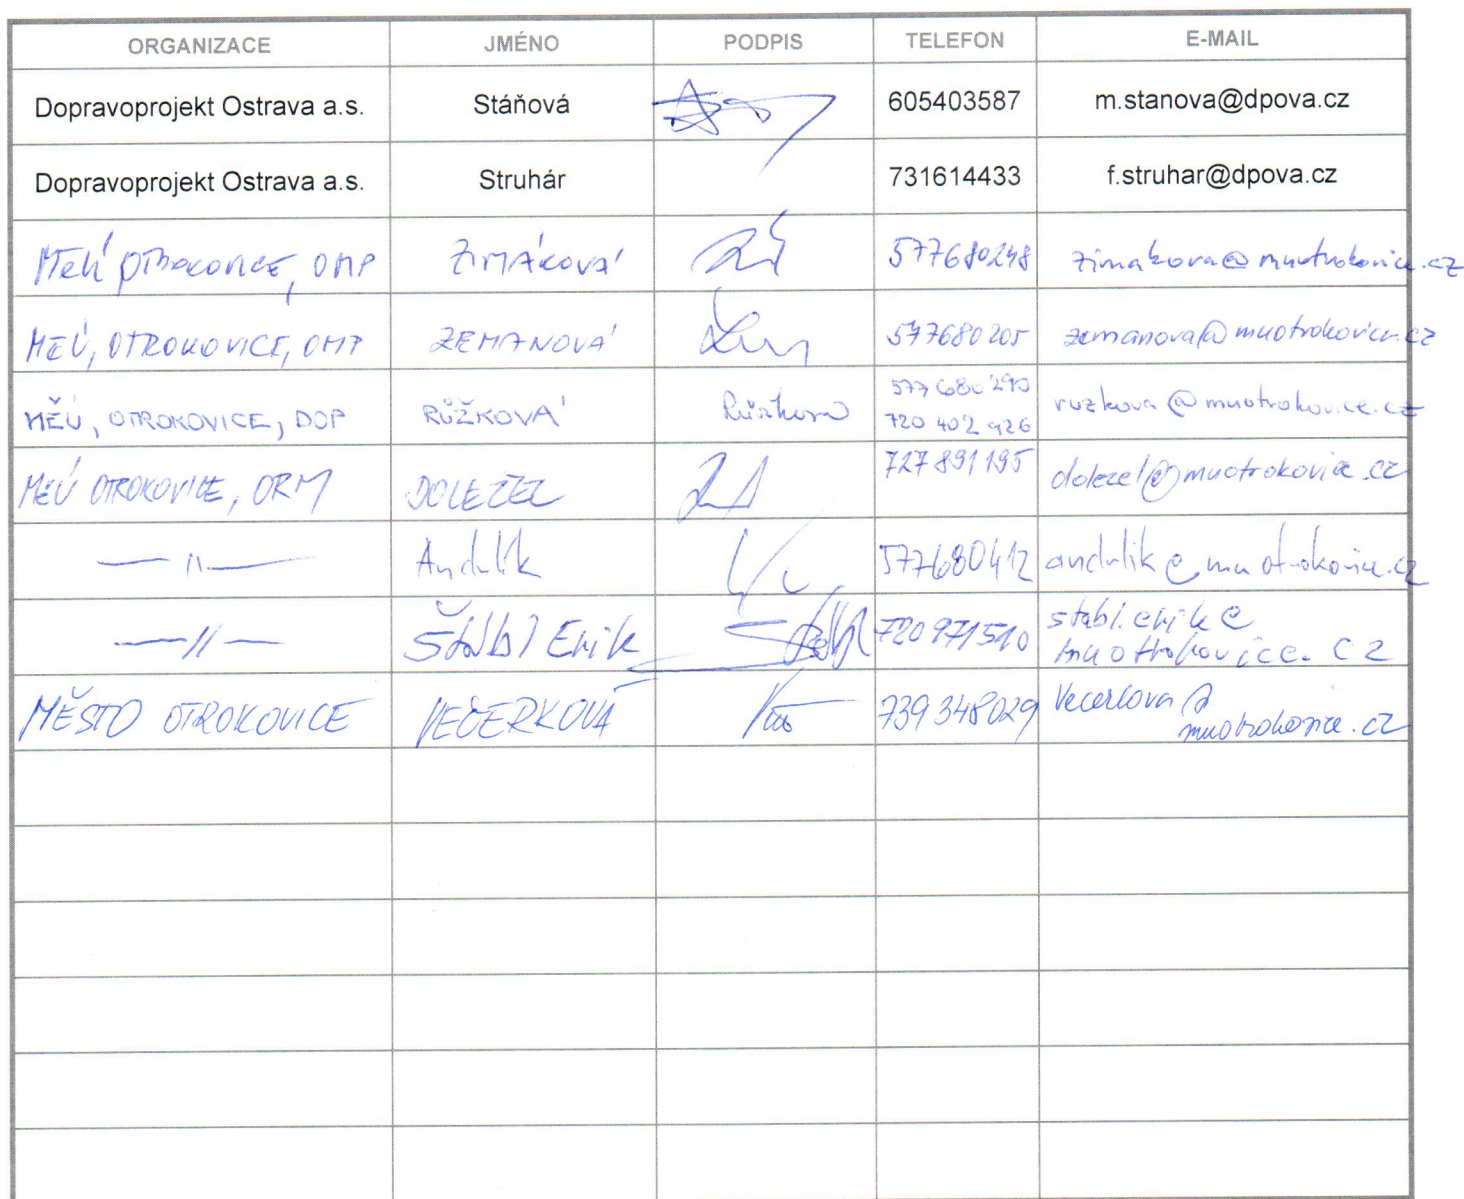 ORGANIZACE JMÉNO PODPIS TELEFON E-MAIL
Dopravoprojekt Ostrava a.s. Stáňová 605403587 m.stanova@dpova.cz
Dopravoprojekt Ostrava a.s. Struhár 731614433 f.struhar@dpova.cz
MěÚ OTROKOVICE, OMP ZIMÁKOVÁ 577680248 zimakova@muotrokovice.cz
MĚÚ, OTROKOVICE, OMP ZEMANOVÁ 577680205 zemanova@muotrokovice.cz
MĚÚ, OTROKOVICE, DOP RŮŽKOVÁ Růžková 577 680 290 ruzkova@muotrokovice.cz
720 402 926
MĚÚ OTROKOVICE, ORM DOLEŽEL 727 891 195 dolezel@muotrokovice.cz
—II— Andulík 577680412 andulik@muotrokovice.cz
—II— Štábl Erik 720971510 stabl.erik@
muotrokovice.cz
MĚSTO OTROKOVICE VEČERKOVÁ 739348029 vecerkova@
muotrokovice.cz